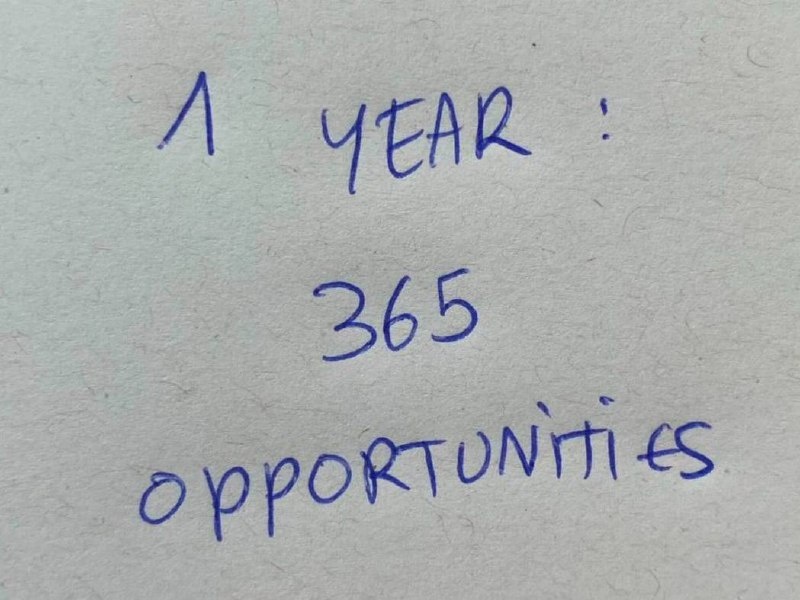 1 YEAR:
365
OPPORTUNITIES